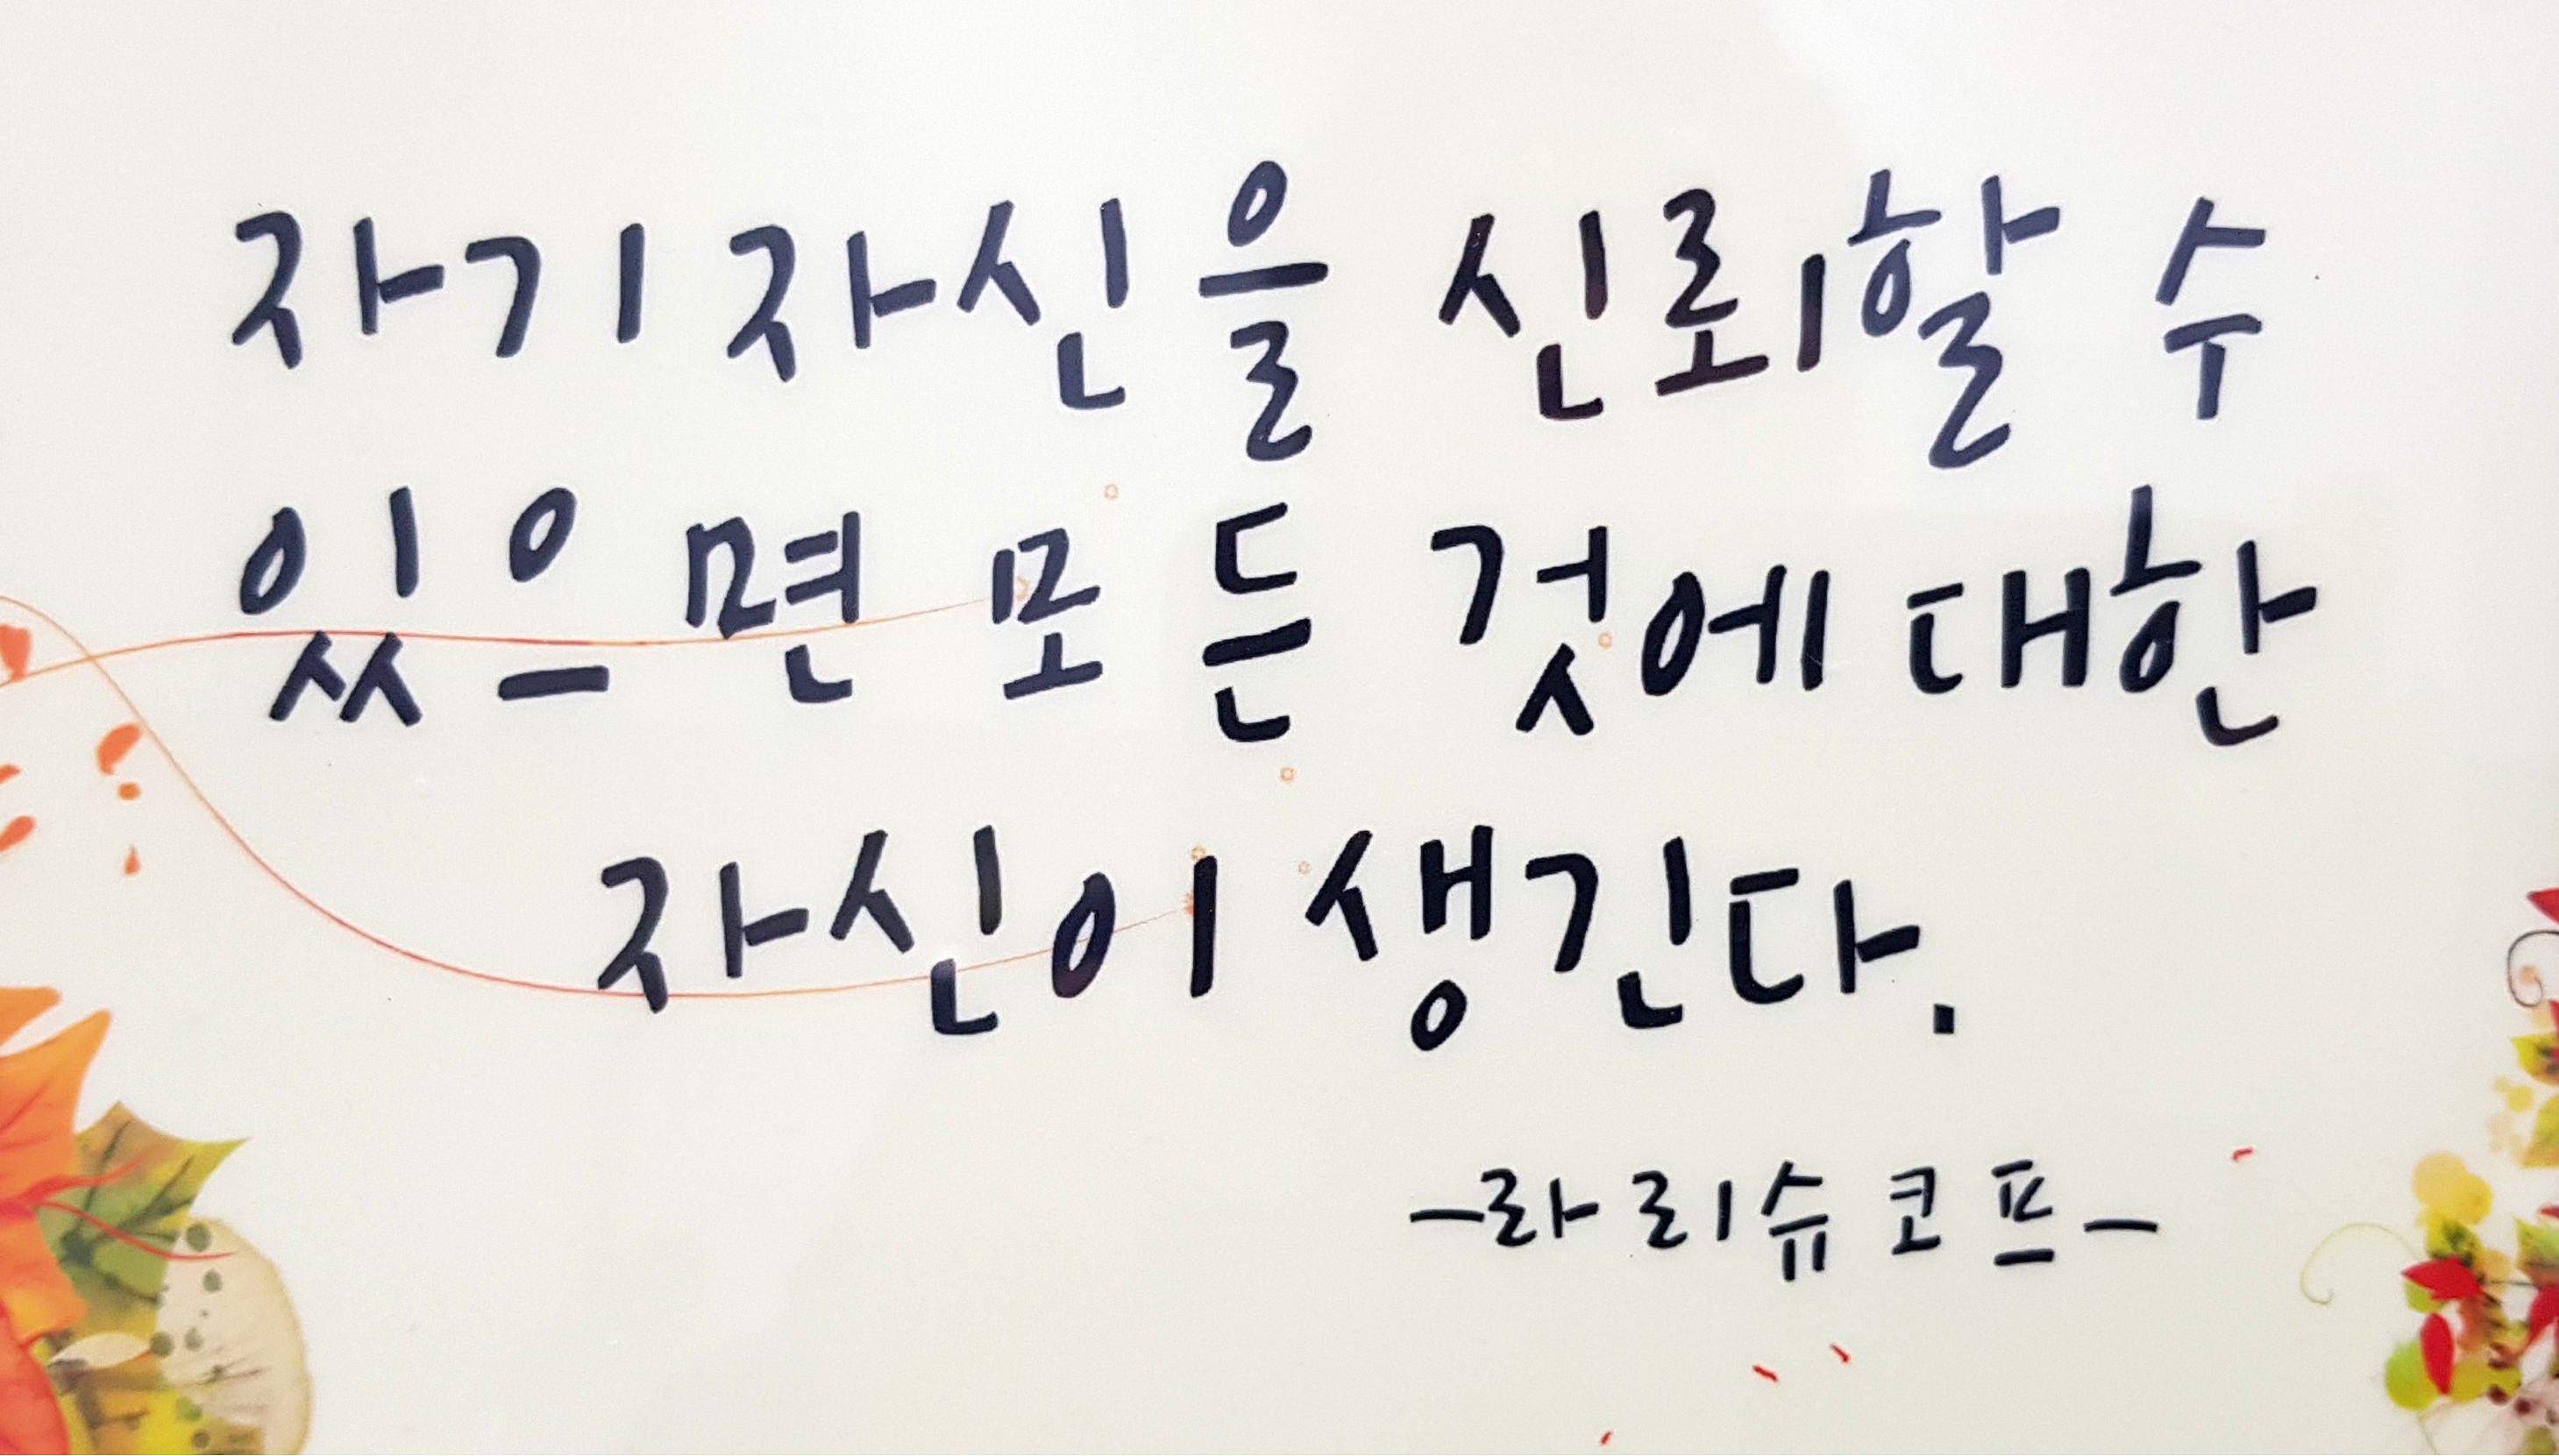 자기자신을 신뢰할 수
있으면 모든 것에 대한
자신이 생긴다.
-라리슈코프-